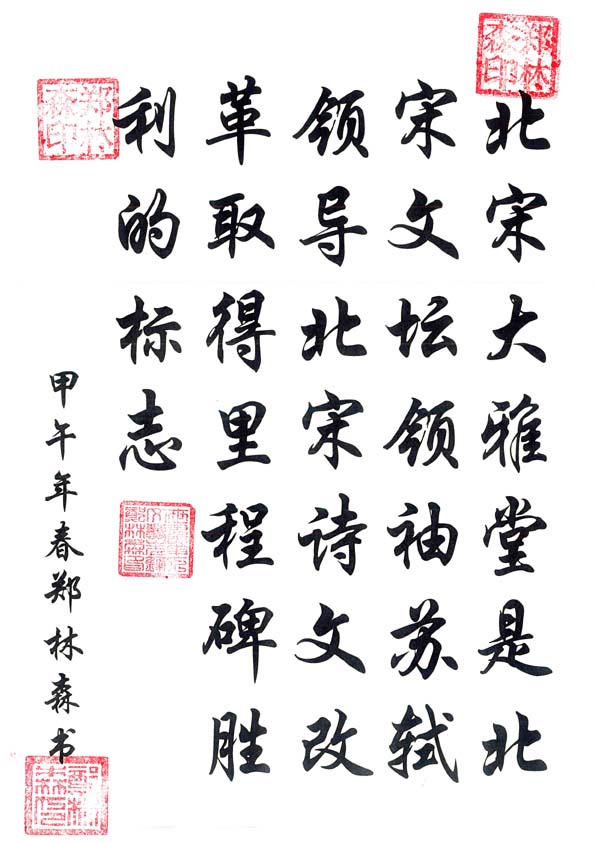 北宋大雅堂是北
宋文坛领袖苏轼
领导北宋诗文改
革取得里程碑胜
利的标志
甲午年春郑林森书
郑林森印
郑林森印